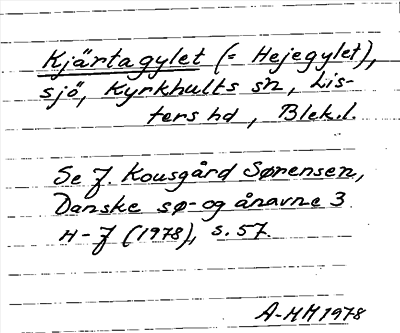 Kjärtagylet (= Hejegylet),
sjö, Kyrkhults sn, Lis-
ters hd, Blek.l.
Se J. Kousgård Sørensen,
Danske sø- og ånavne 3
H-J (1978), s. 57.
A-MH 1978